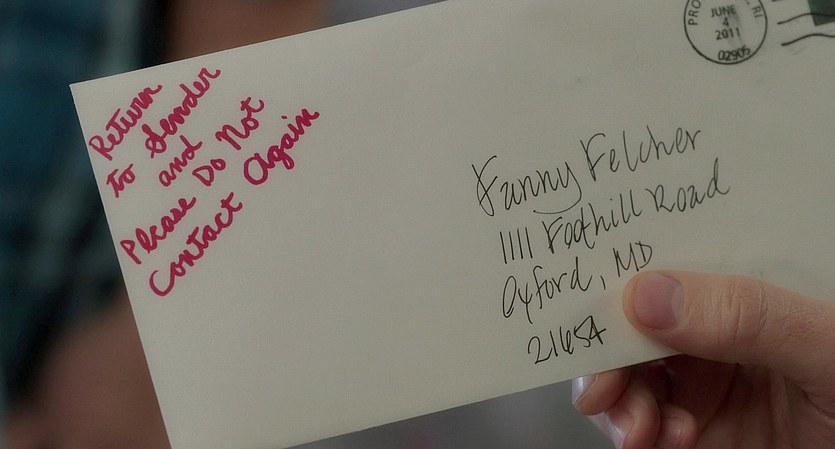 Return
to Sender
and
Please Do Not
Contact Again
JUNE
4
2011
02905
Fanny Felcher
1111 Foothill Road
Oxford, MD
21654